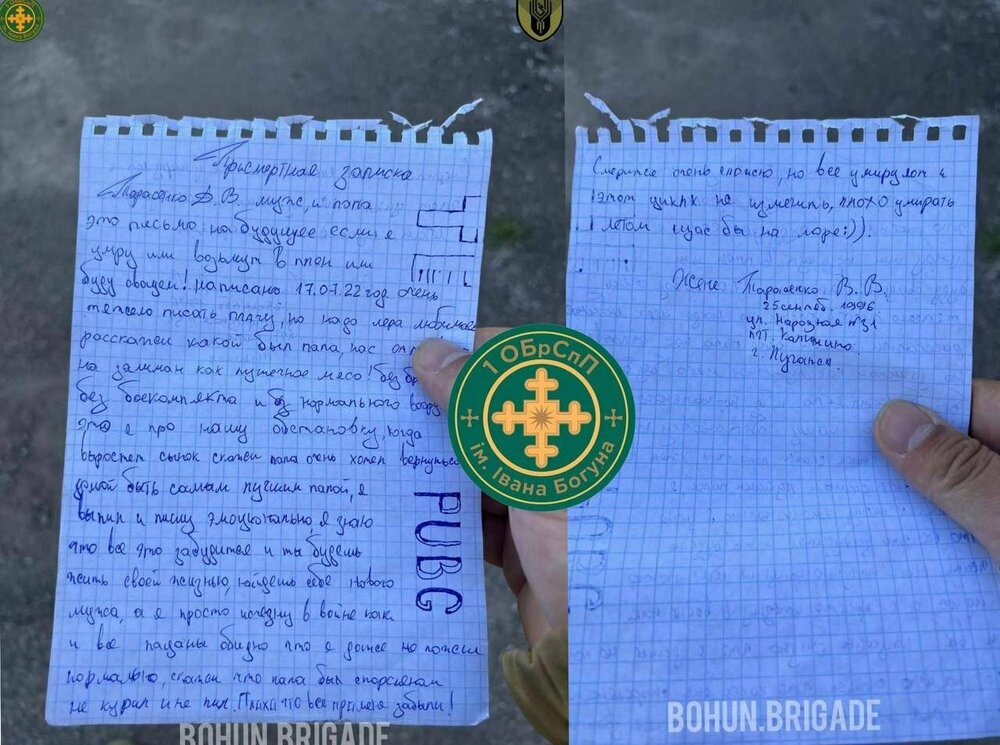 Присмертная записка
Тарасенко Д.В. муж, и папа
это письмо на буддущее если я
умру или возьмут в плен или
буду овощем! написано 17.07.22 год очень
тяжело писать плачу, но надо лера любимая
расскажи какой был папа, нас
на залман как пушечное мясо! без
без боекомплекта и без нормального
это я про нашу обстановку, когда
выростет сынок скажи папа очень хотел вернуться
домой быть самым лучшим папой, я
выпил и пишу эмоуионально, я знаю
что все это забудится и ты будешь
жить своей жизнью, найдешь себе нового
мужа, а я просто исчезну в войне как
и все пацаны обидно что я даже не пожил
нормально, скажи что папа был спорсменом
не курил и не пил. что все про меня забыли!
PUBG
1 ОБрСпП
ім. Івана Богуна
BOHUN.BRIGADE
Смеритсе очень спасно, но все умирулот и
этот цикл не изменить, плохо умирать
летом щас бы на море:)).
Жене Тарасенко В.В.
25 сентяб. 1996
ул. Народная №31
пгт. Калинино
г. Луганск
BOHUN.BRIGADE